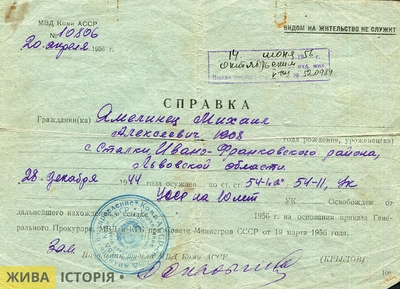 МВД Коми АССР
№ 10806
20 апреля 1956 г.
ВИДОМ НА ЖИТЕЛЬСТВО НЕ СЛУЖИТ
14 июня 56 г.
СПРАВКА
Гражданин(ка) Михаил
Алексеевич 1908 года рождения, уроженец(ка)
с. Сталки, Ивано-Франковского района,
Львовской области.
28 декабря 1944 года осужден по ст. 54-1"а" 54-11, УК
УССР на 10 лет УК Освобожден
дальнейшего нахождения 1956 г. на основании приказа Гене-
рального Прокурора МВД и КГБ при Совете Министров СССР от 19 марта 1956 года.
Зам. Начальник МВД Коми АССР
(КРЫЛОВ)
ЖИВА ІСТОРІЯ